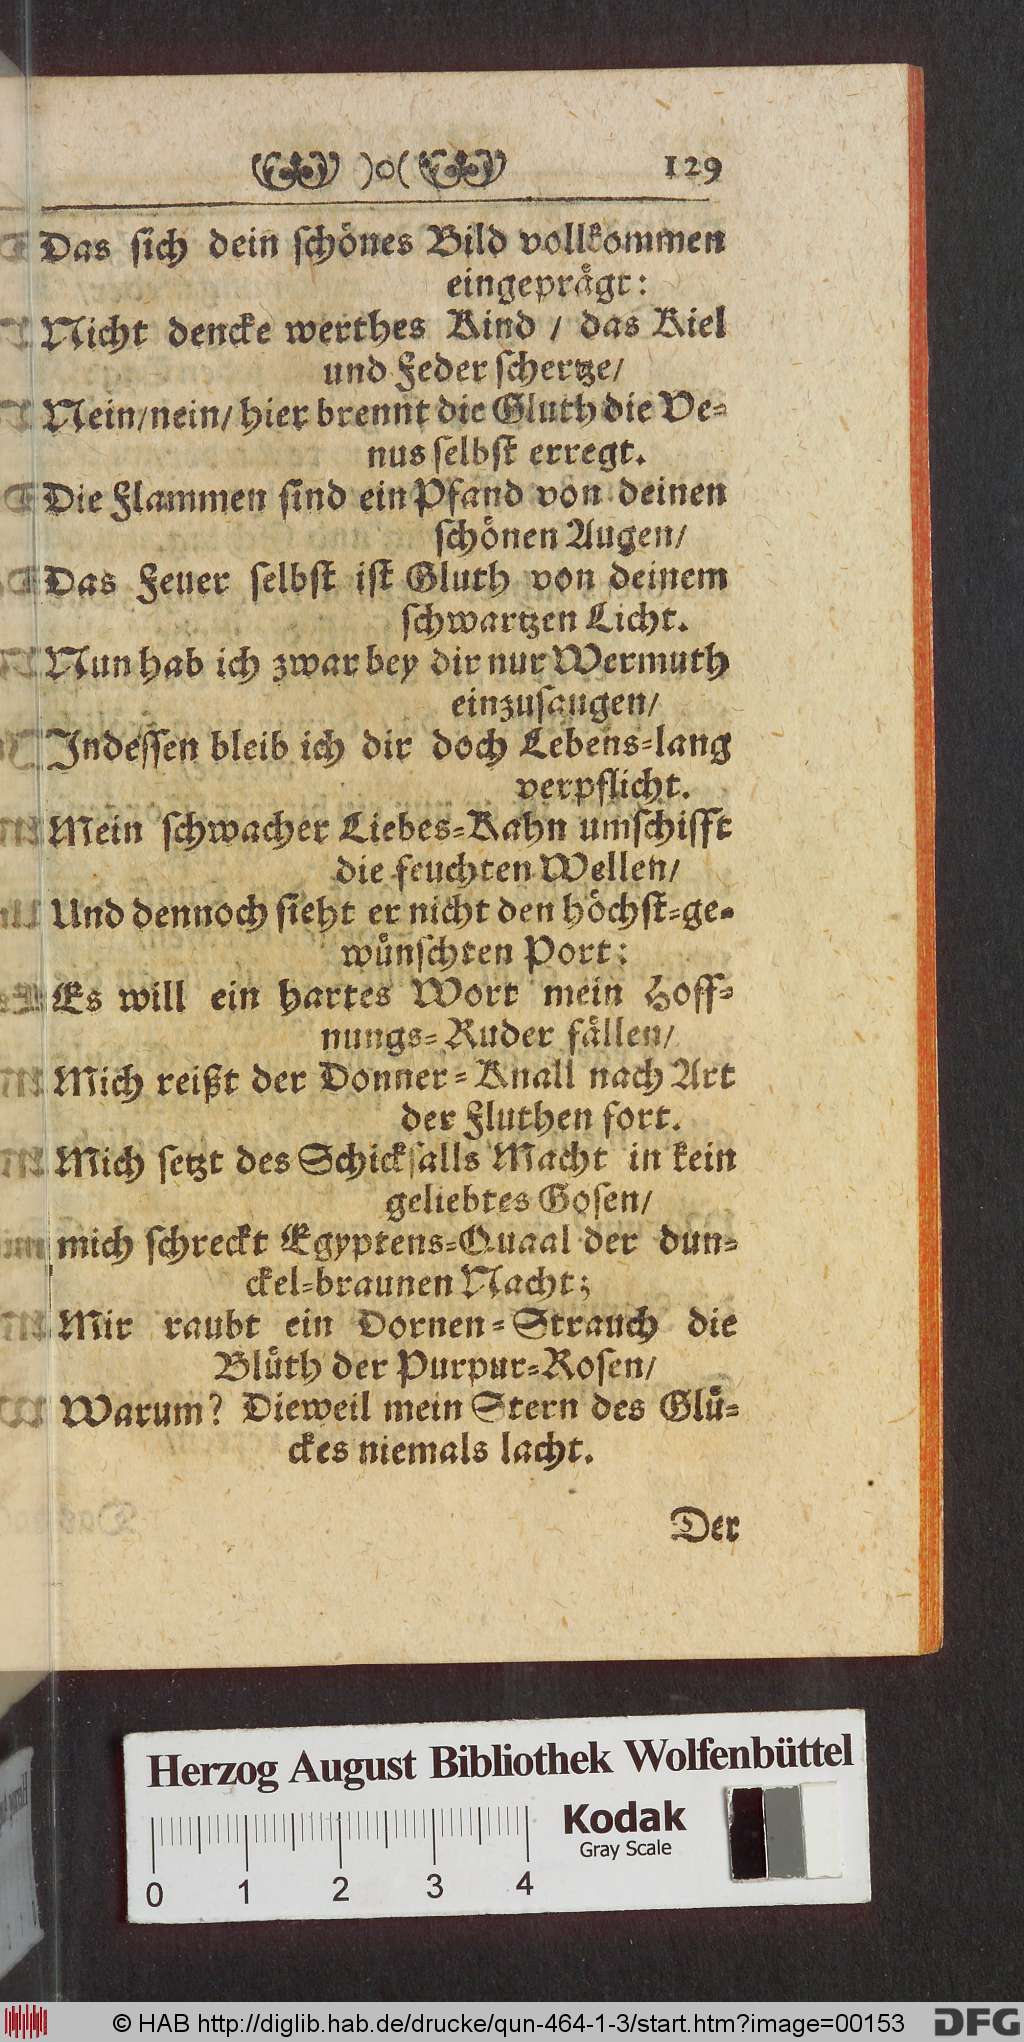 )o( 129
Das sich dein schönes Bild vollkommen
eingeprägt:
Nicht dencke werthes Kind / das Kiel
und Feder schertze/
Nein/nein/ hier brennt die Gluth die Ve-
nus selbst erregt.
Die Flammen sind ein Pfand von deinen
schönen Augen/
Das Feuer selbst ist Gluth von deinem
schwartzen Licht.
Nun hab ich zwar bey dir nur Wermuth
einzusaugen/
Indessen bleib ich dir doch Lebens-lang
verpflicht.
Mein schwacher Liebes-Kahn umschifft
die feuchten Wellen/
Und dennoch sieht er nicht den höchst-ge-
wünschten Port:
Es will ein hartes Wort mein Hoff-
nungs-Ruder fällen/
Mich reißt der Donner-Knall nach Art
der Fluthen fort.
Mich setzt des Schicksalls Macht in kein
geliebtes Gosen/
mich schreckt Egyptens-Quaal der dun-
ckel-braunen Nacht;
Mir raubt ein Dornen-Strauch die
Blüth der Purpur-Rosen/
Warum? Dieweil mein Stern des Glü-
ckes niemals lacht.
Der
Herzog August Bibliothek Wolfenbüttel
Kodak
Gray Scale
0 1 2 3 4
© HAB http://diglib.hab.de/drucke/qun-464-1-3/start.htm?image=00153
DFG